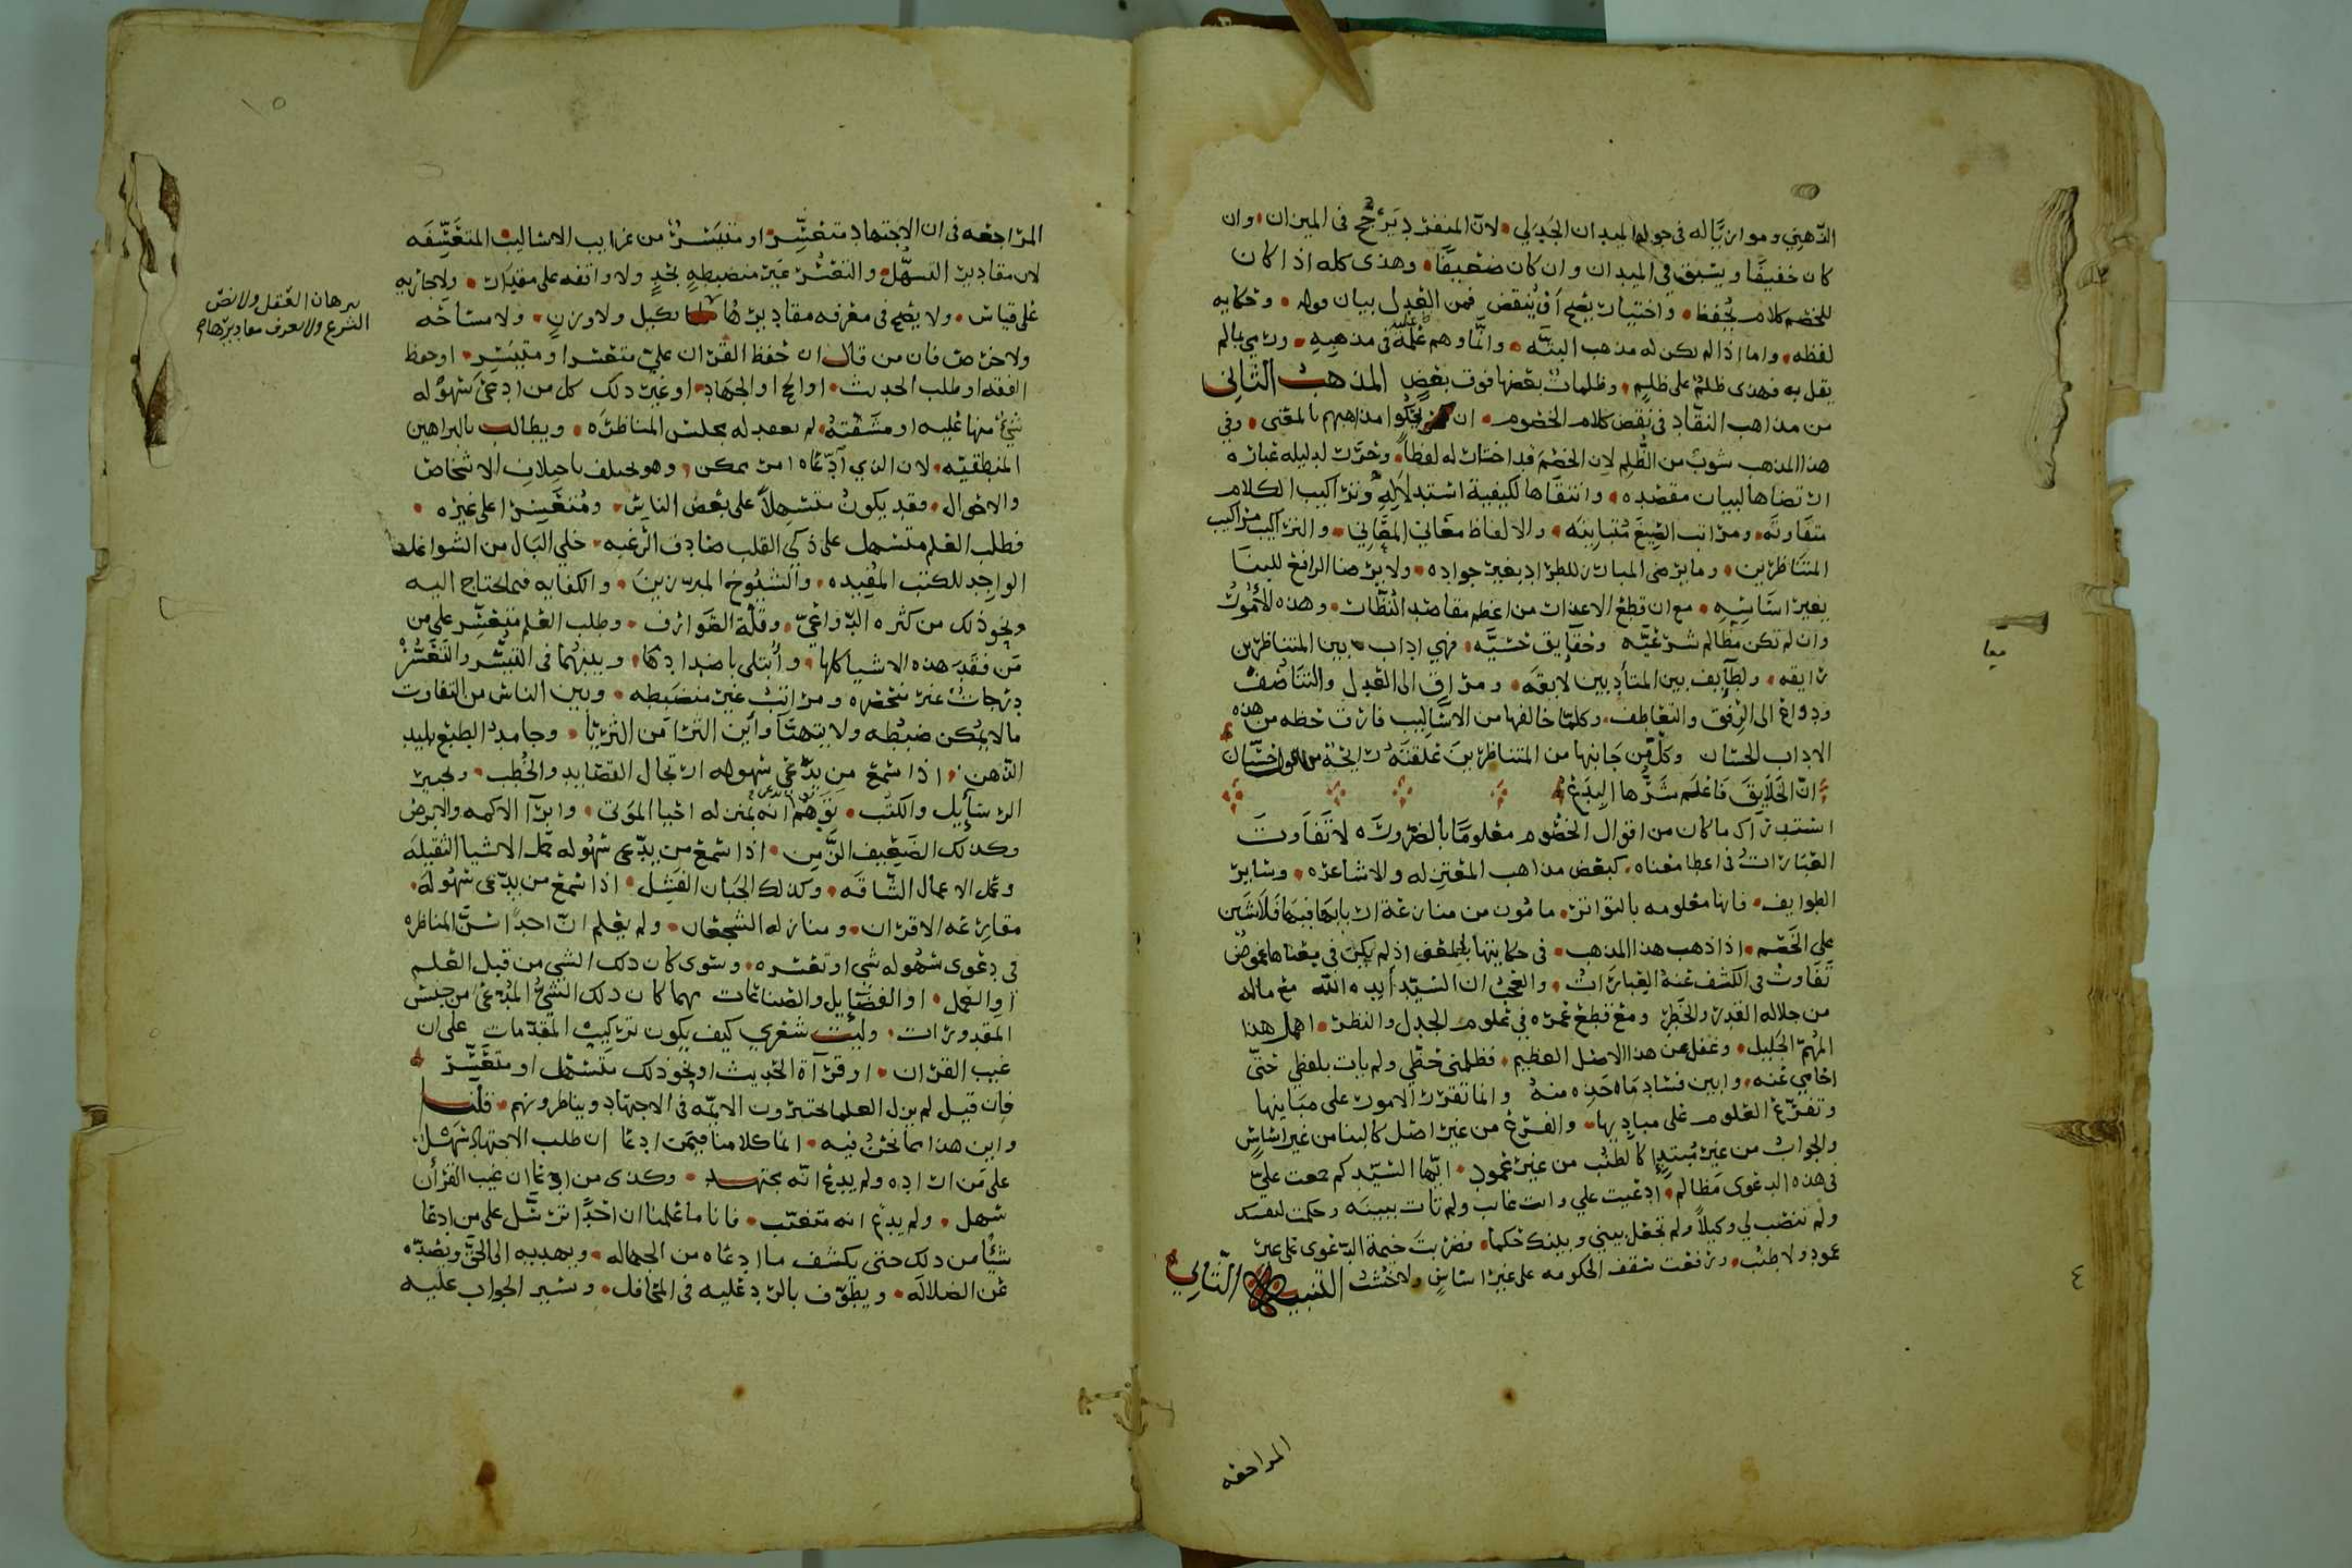 الذهني وموازياله في جولها لميدان الجدلي لان المنفرد يرجح في الميزان وان
كان خفيفا ويسبق في الميدان وان كان ضعيفا وهذى كله اذا كان
للخصم كلام يحفظ واختيار يصح ان ينقض فمن العدل بيان قوله وحكايه
لفظه واما اذا لم يكن له مذهب البته وانما وهم عليه في مذهبه ورمي بمالم
يقل به فهذى ظلم على ظلم وظلمات بعضها فوق بعض المذهب الثاني
من مذاهب النقاد في نقض كلام الخصوم ان يحكوا مذاهبهم بالمعنى وفي
هذا المذهب شوب من الظلم لان الخصم قد اختار له لفظا وحرر لدليله عباره
ارتضاها لبيان مقصده وانتقاها لكيفية استدلاله وتراكيب الكلام
متفاوته ومراتب الصيغ متباينه والالفاظ معاني المعاني والتراكيب مراكيب
المتناظرين وما يرضى المبارز للطراد بغير جواده ولا يرضا الرافع للبنا
بغير اساسه مع ان قطع الاعذار من اعظم مقاصد النظار وهذه الامور
وان لم تكن مظالم شرعيه وحقايق حسيه فهي اداب بين المتناظرين
رايقه ولطايف بين المتأدبين لايقه ومراق الى العدل والتناصف
ودواع الى الرفق والتعاطف وكلما خالفها من الاساليب فارق حظه من هذه
الاداب الحسان وكل من جانبها من المتناظرين علقته رايحة من قول حسان
ان الخلايق فاعلم شرها البدع
استدراك ما كان من اقوال الخصوم معلوما بالضروره لا تفاوت
العبارات في اعطا معناه كبعض مذاهب المعتزله والاشاعره وساير
الطوايف فانها معلومه بالتواتر مامون من منازعة اربابها فيها فلا شين
على الخصم اذا ذهب هذا المذهب في حكايتها بالمعنى اذ لم يكن في معناها غموض
تفاوت في الكشف عنه العبارات والعجب ان السيد ايده الله مع ماله
من جلاله القدر والخطر ومع قطع عمره في علوم الجدل والنظر اهمل هذا
المهم الجليل وغفل عن هذا الاصل العظيم فظلمني حظي ولم يات بلفظي حتى
احامي عنه وابين فساد ماه خذه منه وانما تقرر الامور على مباينها
وتفرع العلوم على مباديها والفرع من غير اصل كالبنا من غير اساس
والجواب من غير مبتدإ كالطنب من غير عمود ايها السيد كم جمعت علي
في هذه الدعوى مظالم ادعيت علي وانت غايب ولم تات ببينه وحكمت لنفسك
ولم تنصب لي وكيلا ولم تجعل بيني وبينك حكما فضربت خيمة الدعوى على غير
عمود ولا طنب ورفعت سقف الحكومه على غير اساس ولا خشب التنبيه الثاني
المراجعه
معا
٤
المراجعه في ان الاجتهاد متعسر او متيسر من غرايب الاساليب المتعسفه
لان مقادير التسهل والتعسر غير منضبطه بحد ولا واقفه على مقدار ولا جاريه
على قياس ولا يصح في معرفه مقاديرها كيل ولا وزن ولا مساحه
ولا خرص فان من قال ان حفظ القران علي متعسر او متيسر او حفظ
الفقه او طلب الحديث او الحج او الجهاد او غير ذلك كل من ادعى سهوله
شيء منها عليه او مشقته لم يعقد له مجلس المناظره ويطالب بالبراهين
المنطقيه لان الذي ادعاه امر ممكن وهو يختلف باختلاف الاشخاص
والاحوال وقد يكون متسهلا على بعض الناس ومتعسرا على غيره
فطلب العلم متسهل على ذكي القلب صادق الرغبه خلي البال من الشواغل
الواجد للكتب المفيده والشيوخ المبرزين والكفايه فيما يحتاج اليه
ونحو ذلك من كثره الدواعي وقلة الصوارف وطلب العلم متعسر على من
من فقد هذه الاشيا كلها وابتلي باضدادها وبينهما في التيسر والتعسر
درجات غير منحصره ومراتب غير منضبطه وبين الناس من التفاوت
مالا يمكن ضبطه ولا يتهيا واين الثرا من الثريا وجامد الطبع بليد
الذهن اذا سمع من يدعي سهوله ارتجال القصايد والخطب وتحبير
الرسايل والكتب توهم انه بمنزله احيا الموتى وابرآ الاكمه والابرص
وكذلك الضعيف الزمن اذا سمع من يدعى سهوله حمل الاشيا الثقيله
وعمل الاعمال الشاقه وكذلك الجبان الفشل اذا سمع من يدعى سهوله
مقارعه الاقران ومنازله الشجعان ولم يعلم ان احدا سن المناظره
في دعوى سهوله شي او تعسره وسوى كان ذلك الشي من قبل العلم
او العمل او الفضايل والصناعات مهما كان ذلك الشي المدعى من جنس
المقدورات وليت شعري كيف يكون تركيب المقدمات على ان
غيب القران او قرآة الحديث او نحو ذلك متسهل او متعسر
فان قيل لم يزل العلما يختبرون الايمه في الاجتهاد ويناظرونهم قلنا
واين هذا مما نحن فيه انما كلامنا فيمن ادعا ان طلب الاجتهاد سهل
على من اراده ولم يدع انه مجتهد وكذى من ادعا ان غيب القران
سهل ولم يدع انه متغيب فانا ما علمنا ان احدا ترسل على من ادعا
شيا من ذلك حتى يكشف ما ادعاه من الجهاله ويهديه الى الحق ويصده
عن الضلاله ويطوف بالرد عليه في المحافل وسير الجواب عليه
برهان العقل ولا نص
الشرع ولا تعرف مقاديرها
١٥